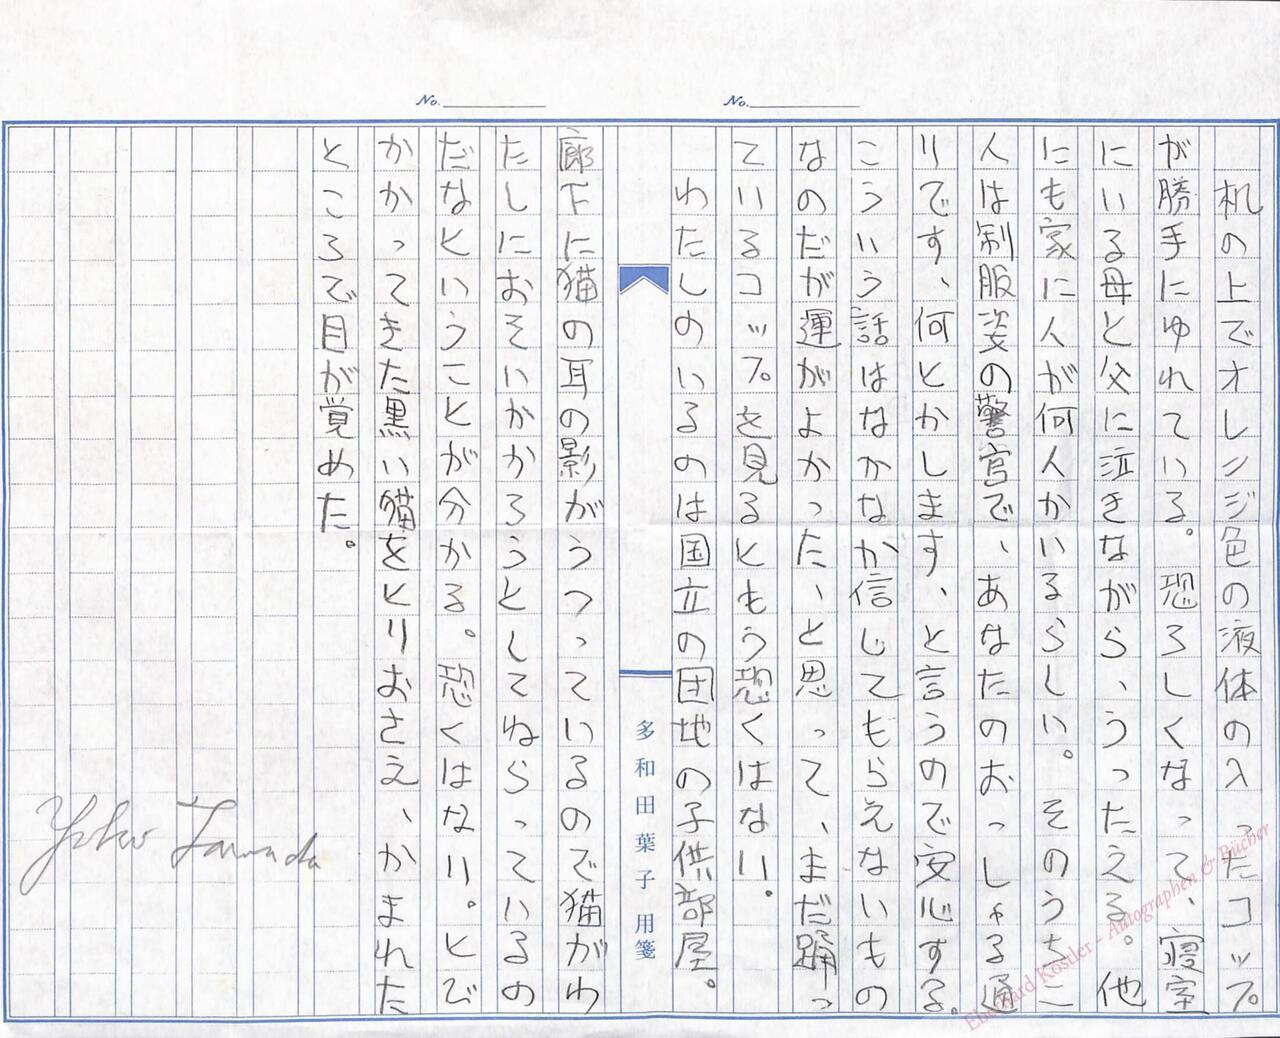 No.
No.
机の上でオレンジ色の液体の入ったコップ
が勝手にゆれている。恐ろしくなって、寝室
にいる母と父に泣きながら、うったえる。他
にも家に人が何人かいるらしい。そのうちこ
人は制服姿の警官で、あなたのおっしゃる通
りです、何とかします、と言うので安心する。
こういう話はなかなか信じてもらえないもの
なのだが運がよかった、と思って、まだ踊っ
ているコップを見るともう恐くはない。
わたしのいるのは国立の団地の子供部屋。
多和田葉子用箋
廊下に猫の耳の影がうつっているので猫がわ
たしにおそいかかろうとしてねらっているの
だなということが分かる。恐くはない。とび
かかってきた黒い猫をとりおさえ、かまれた
ところで目が覚めた。
Yoko Tawada
Eberhard Köstler - Autographen & Bücher